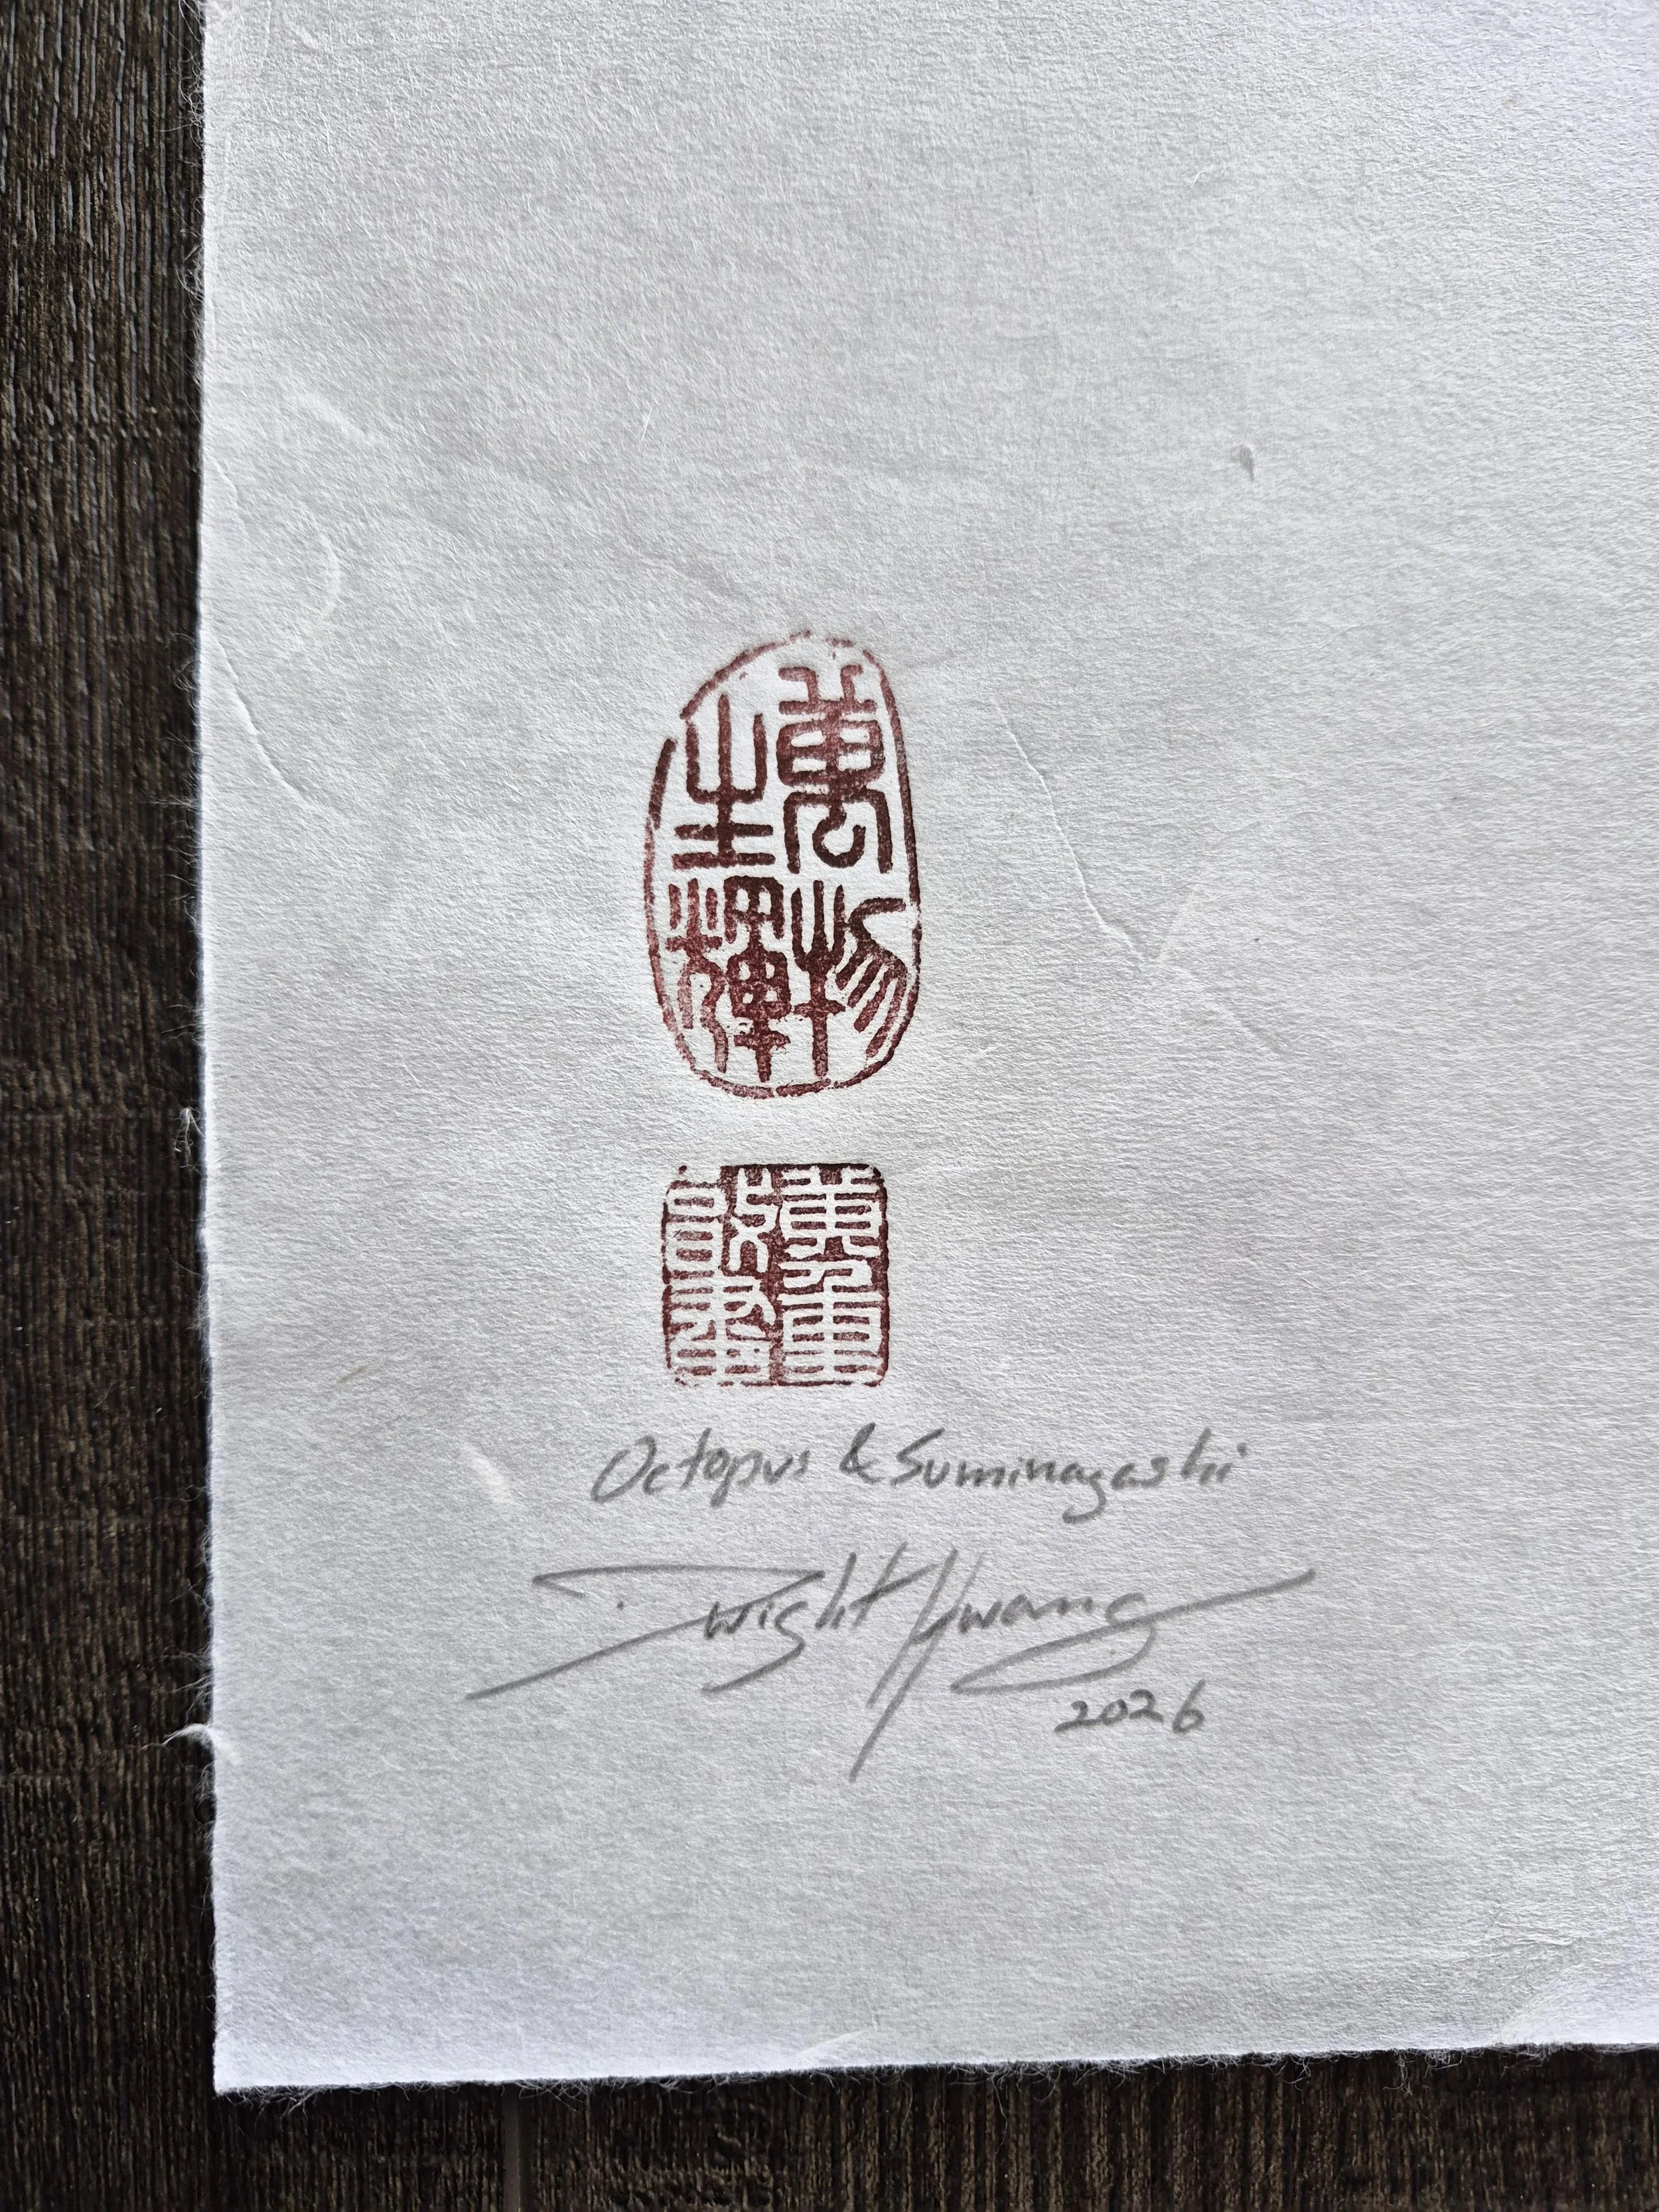 萬物
生輝
Octopus & Suminagashi
Dwight Hwang
2026